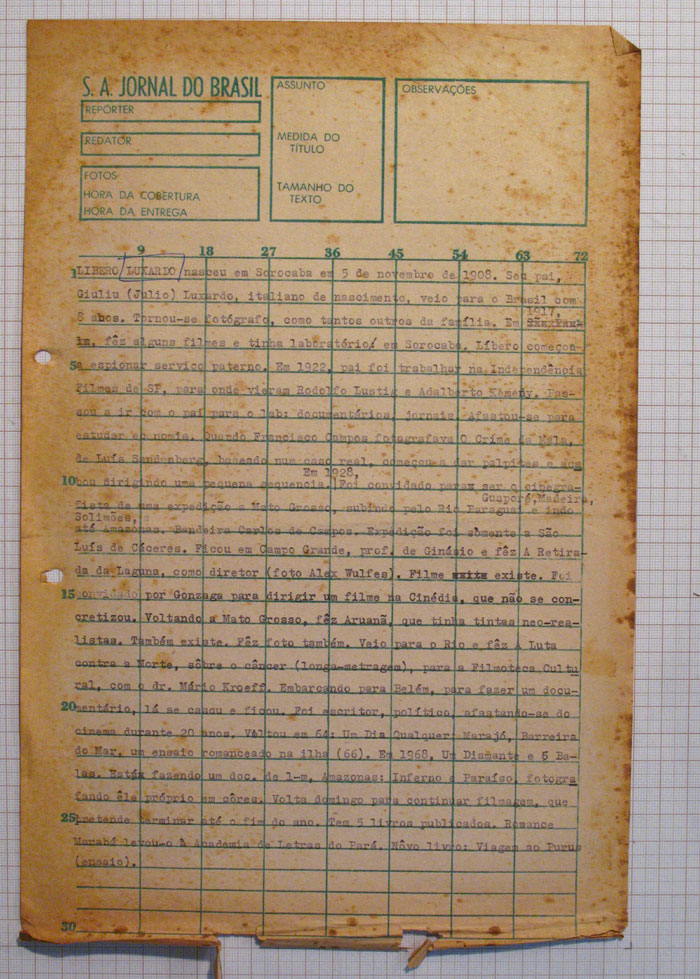 S. A. JORNAL DO BRASIL
REPÓRTER
REDATOR
FOTOS
HORA DA COBERTURA
HORA DA ENTREGA
ASSUNTO
MEDIDA DO
TÍTULO
TAMANHO DO
TEXTO
OBSERVAÇÕES
9 18 27 36 45 54 63 72
1 LIBERO LUXARDO nasceu em Sorocaba em 5 de novembro de 1908. Seu pai,
Giuliu (Julio) Luxardo, italiano de nascimento, veio para o Brasil com
1917,
8 abos. Tornou-se fotógrafo, como tantos outros da família. Em
fêz alguns filmes e tinha laboratório em Sorocaba. Líbero começou-
5 a espionar serviço paterno. Em 1922, pai foi trabalhar na Independência
Filmes de SP, para onde vieram Rodolfo Lustig e Adalberto Kemeny. Pas-
sou a ir com o pai para o lab: documentários, jornais. Afastou-se para
estudar economia. Quando Francisco Campos fotografava O Crime da Mala,
de Luís baseado num caso real, começou a dar palpites e aca
Em 1928,
10 bou dirigindo uma pequena sequencia. Foi convidado para ser o cinegra-
Guaporé, Madeira,
fista de uma expedição a Mato Grosso, subindo pelo Rio Paraguai e indo
Solimões,
até Amazonas. Bandeira Carlos de Campos. Expedição foi sòmente a São
Luís de Cáceres. Ficou em Campo Grande, prof. de Ginásio e fêz A Retira-
da da Laguna, como diretor (foto Alex Wulfes). Filme existe. Foi
15 convidado por Gonzaga para dirigir um filme na Cinédia, que não se con-
cretizou. Voltando a Mato Grosso, fêz Aruanã, que tinha tintas neo-rea-
listas. Também existe. Fêz foto também. Veio para o Rio e fêz A Luta
contra a Morte, sôbre o câncer (longa-metragem), para a Filmoteca Cultu
ral, com o dr. Mário Kroeff. Embarcando para Belém, para fazer um docu-
20 mentário, lá se casou e ficou. Foi escritor, político, afastando-se do
cinema durante 20 anos. Voltou em 64: Um Dia Qualquer; Marajó, Barreira
do Mar, um ensaio romanceado na ilha (66). Em 1968, Um Diamante e 5 Ba-
las. Está fazendo um doc. de l-m, Amazonas: Inferno e Paraíso, fotogra
fando êle próprio em côres. Volta domingo para continuar filmagem, que
25 pretende terminar até o fim do ano. Tem 5 livros publicados. Romance
Marabá levou-o à Academia de Letras do Pará. Nôvo livro: Viagem ao Purus
(ensaio).
30